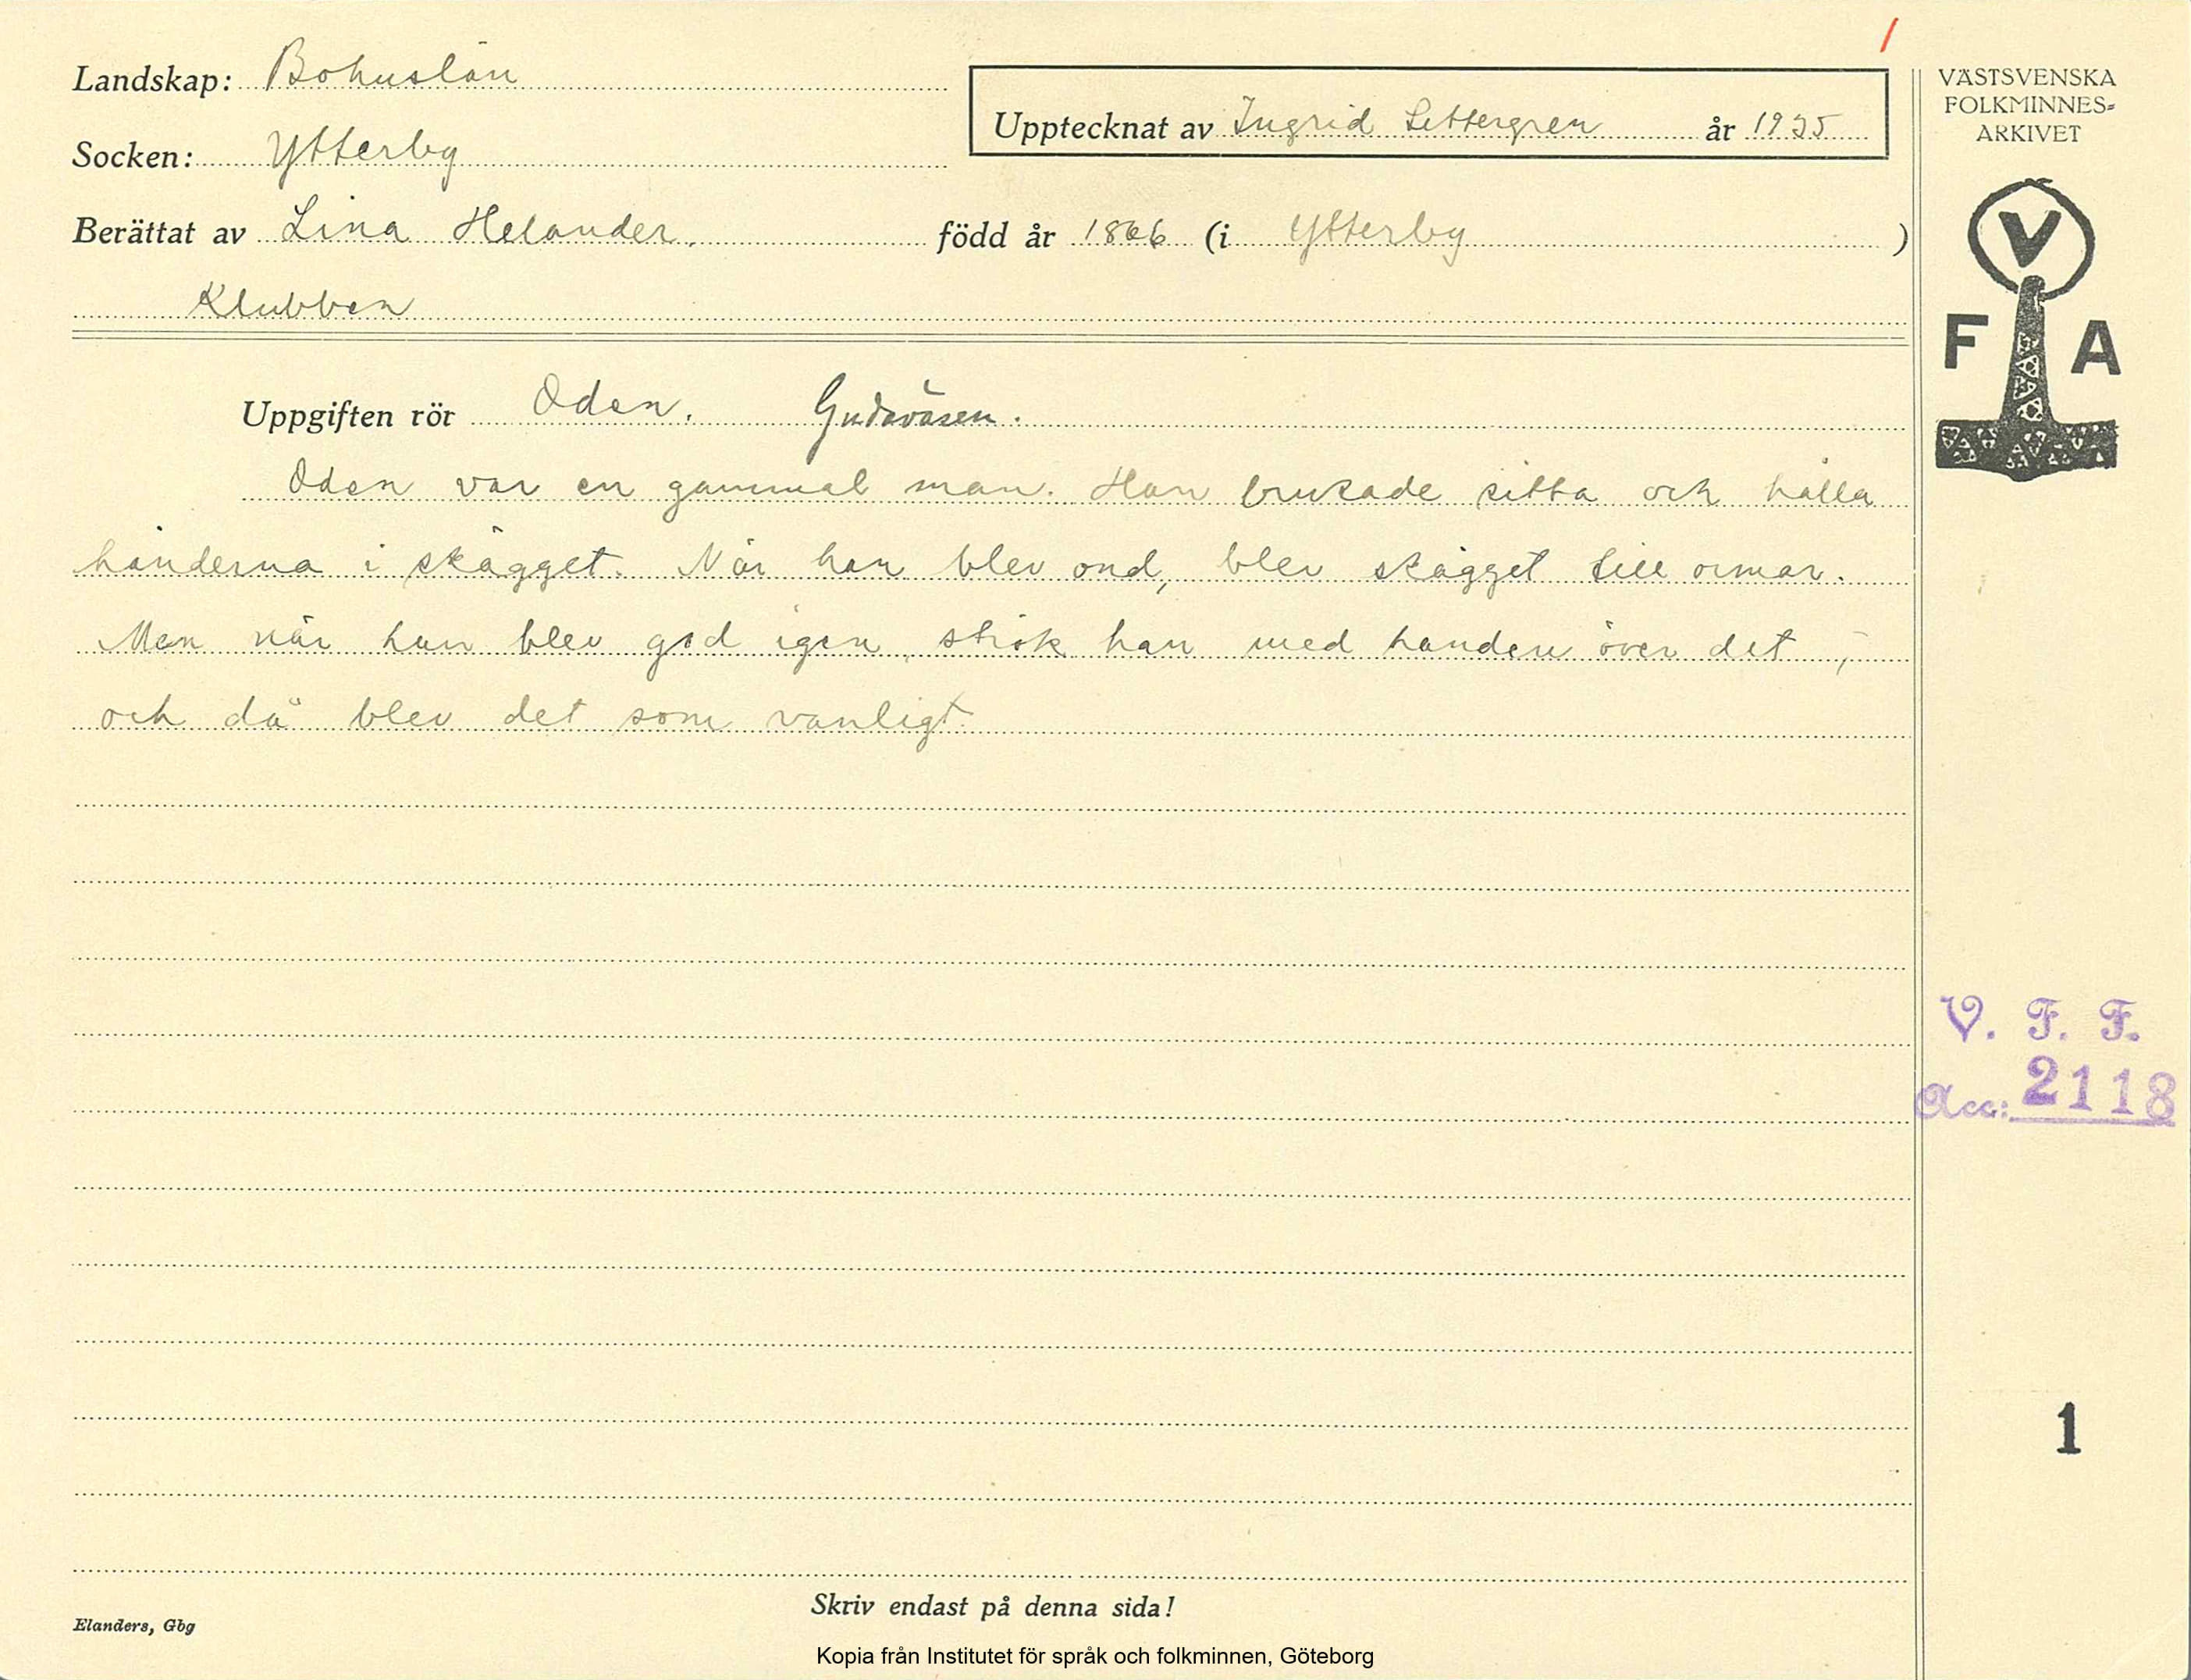 Landskap: Bohuslän
Socken: Ytterby
Upptecknat av Ingrid Settergren år 1925
Berättat av Lina Helander. född år 1866 (i Ytterby )
Klubben
Uppgiften rör Oden. Gudaväsen.
Oden var en gammal man. Han brukade sitta och hålla
händerna i skägget. När han blev ond, blev skägget till ormar.
Men när han blev god igen, strök han med handen över det,
och då blev det som vanligt.
Skriv endast på denna sida!
Elanders, Gbg
Kopia från Institutet för språk och folkminnen, Göteborg
VÄSTSVENSKA
FOLKMINNES=
ARKIVET
V
F A
V. F. F.
Acc: 2118
1